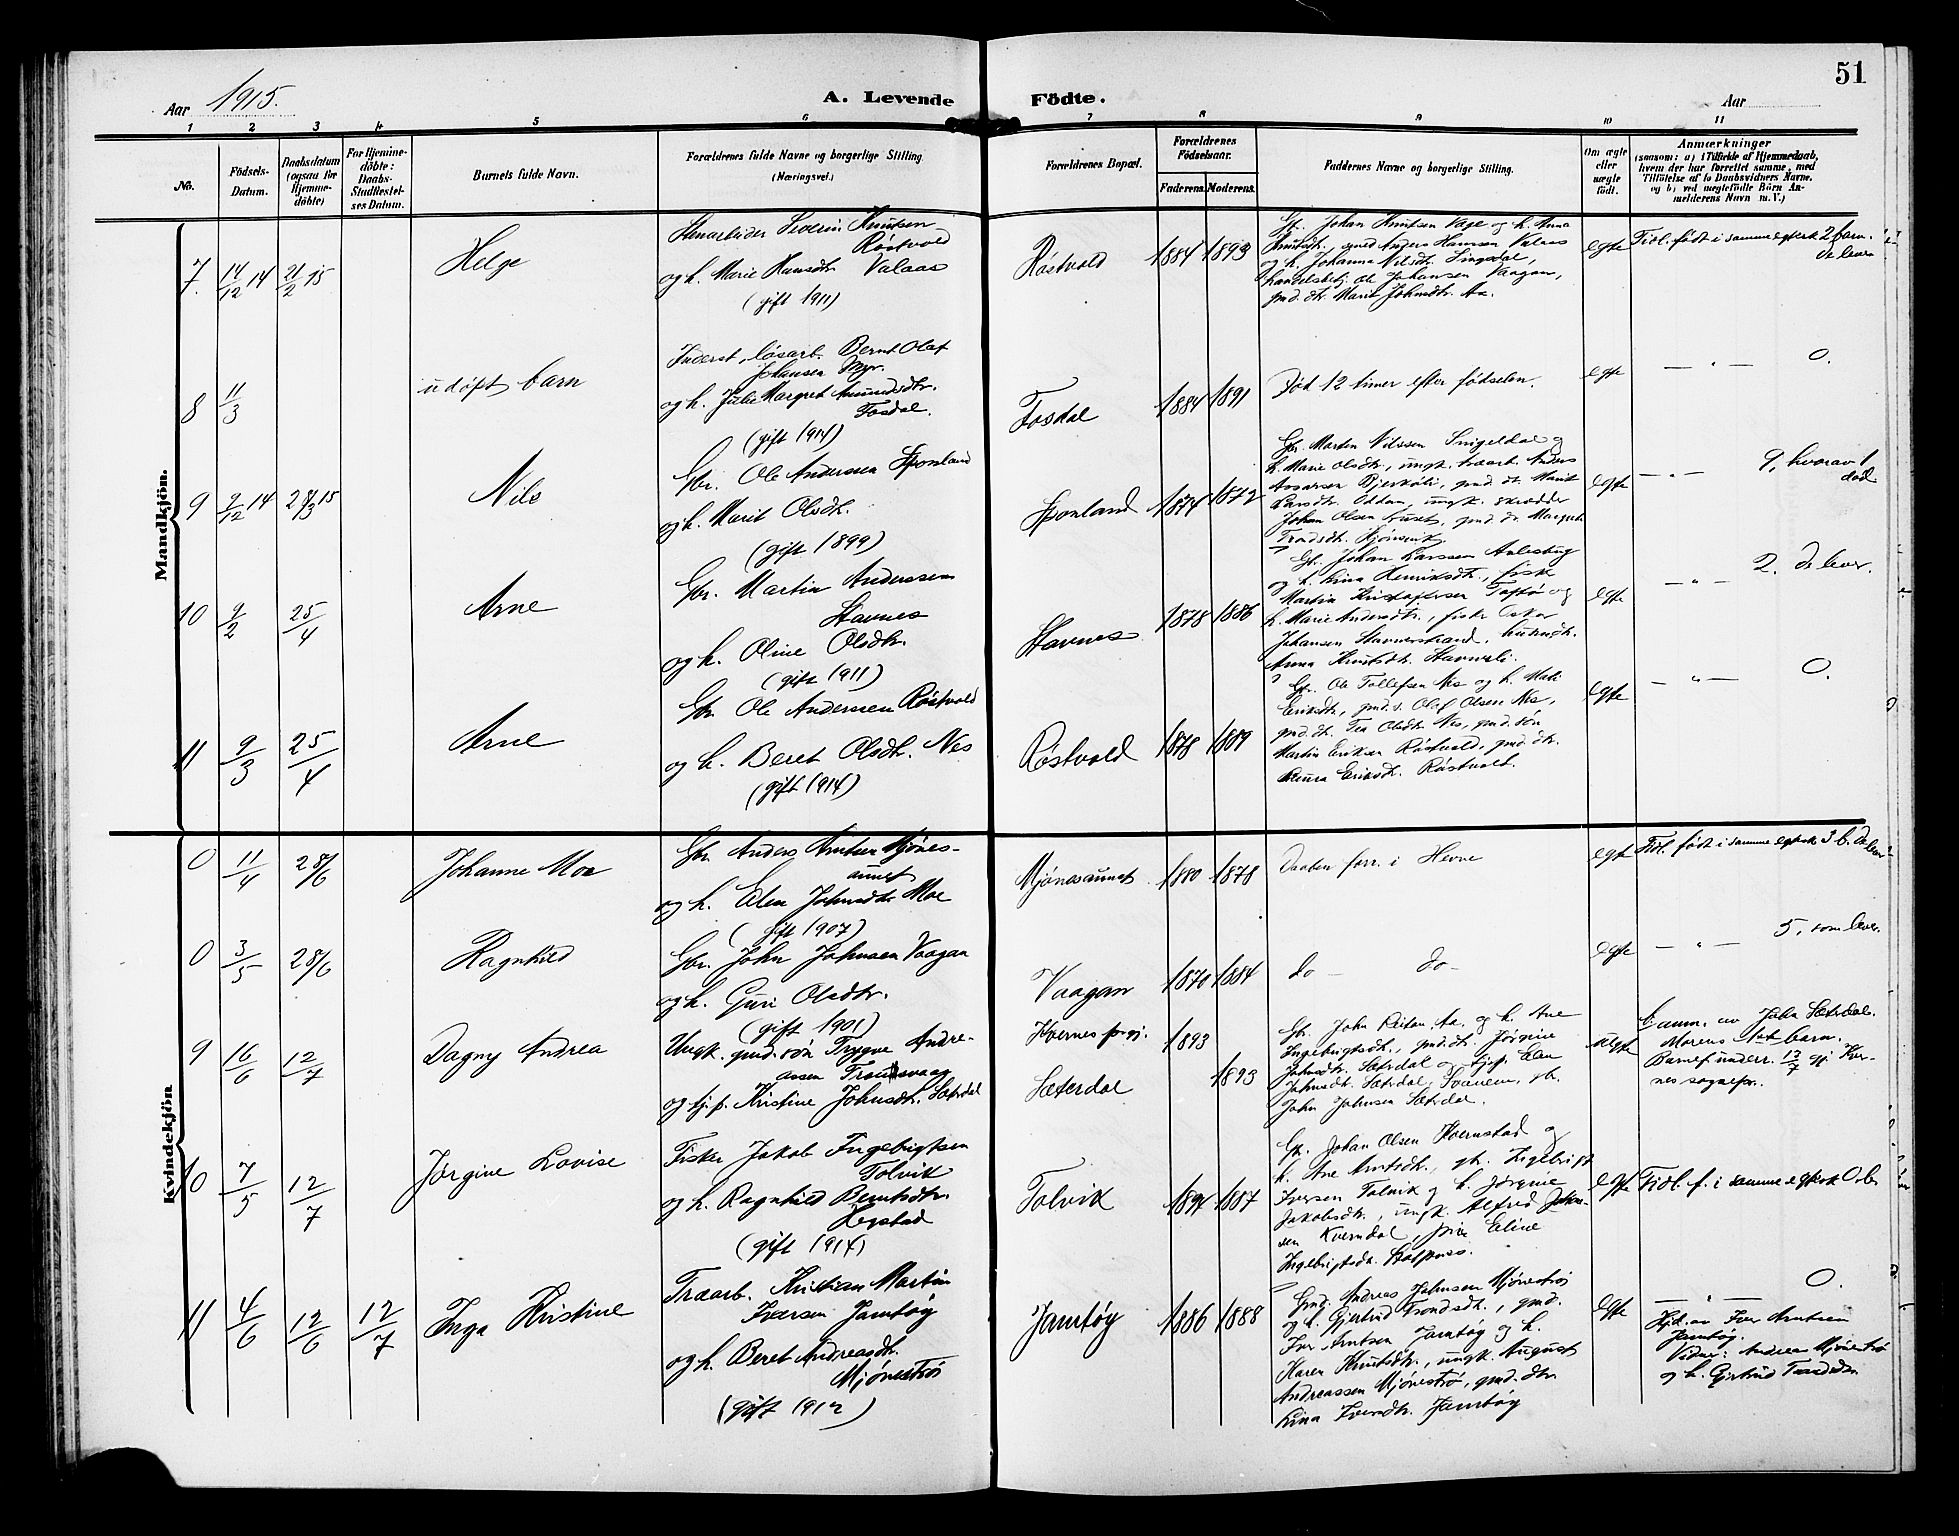 51
Aar 1915.
A. Levende Födte.
Aar
1 2 3 4 5 6 7 8 9 10 11
No.
Födsels-
Datum.
Daabsdatum
(ogsaa for
Hjemme-
döbte)
For Hjemme-
döbte:
Daabs-
Stadfestel-
ses Datum.
Barnets fulde Navn.
Forældrenes fulde Navne og borgerlige Stilling.
(Næringsvei.)
Forældrenes Bopæl.
Forældrenes
Födselsaar.
Faderens. Moderens.
Faddernes Navne og borgerlige Stilling.
Om ægte
eller
uægte
födt.
Anmærkninger
(saasom: a) i Tilfælde af Hjemmedaab,
hvem der har forrettet samme, med
Tilföielse af to Daabsvidners Navne,
og b) ved uægtefödte Börn An-
mælderens Navn m.V.)
Mandkjön.
7. 14/12 14 21/2 15
Helge
Stenarbeider Severin Knutsen
Röstvold
og h. Marie Hansdtr. Valaas
(gift 1911)
Röstvold
1884 1893
Gbr. Johan Knutsen Vage og h. Anna
Knutsdt., gmd Anders Hansen Valaas
og h. Johanna Nilsdt.
handelsbetj. Ole Johansen Vaagan,
gmd. dtr. Marit Johnsdtr. Aa.
egte
Tidl. født i samme egtesk 2 barn.
de lever
8 11/3
udøpt barn
Inderst, løsarb. Bernt Olaf
Johansen Myr.
og h. Julie Margret Amundsdtr.
Fosdal.
(gift 1914)
Fosdal
1884 1891
Død 12 timer efter fødselen.
egte
— " — 0.
9 9/12 14 28/3 15
Nils
Gbr. Ole Anderssen Sponland
og h. Marit Olsdt.
(gift 1899)
Sponland
1874 1872
Gbr. Marten Nilssen Snigeldal og
h. Marie Olsdtr., ungk. træarb. Anders
Assersen Bjerkøli, gmd. dt. Marit
Larsdtr. Oddan, ungk. skrædder
Johan Olsen, gmd. dr. Margret
Trondsdt.
egte
— " — 9, hvorav 1
død
10 9/2 25/4
Arne
Gbr. Martin Anderssen
Stavnes
og h. Oline Olsdtr.
(gift 1911)
Stavnes
1878 1886
Gbr. Johan Larssen
og h. Lina Henriksdtr., fisker
Martin Kristoffersen Taftø og
h. Marie Andersdtr., fisker Oskar
Johansen Stavnesstrand,
Anna Knutsdtr. Stavnesli.
egte
— " — 2. de lever.
11 9/3 25/4
Arne
Gbr Ole Anderssen Röstvold
og h. Beret Olsdtr. Nes
(gift 1914)
Röstvold
1878 1889
Gbr. Ole Tollefsen Nes og h. Mali
Eriksdtr., gmd.s. Olaf Olsen Nes,
gmd. dt. Tea Olsdtr Nes, gmd. søn
Martin Eriksen Röstvold, gmd. dtr.
Eriksdt. Röstvold.
egte
— " — 0.
Kvindekjön
0 11/4 28/6
Johanne Moe
Gbr Anders Arntsen Mjönes-
aunet
og h. Elen Johnsdtr Moe
(gift 1907)
Mjönesaunet
1880 1878
Daaben forr. i Hevne
egte
Tidl. født i samme egtesk 3 b. de lever
0 3/5 28/6
Ragnhild
Gbr. John Johnsen Vaagan
og h. Guri Olsdtr.
(gift 1901)
Vaagan
1870 1884
do — do —
egte
— " — 5, som lever.
9 16/6 12/7
Dagny Andrea
Ungk. gmd. søn Trygve Andre-
assen Trondsvaag
og pi.p. Kristine Johnsdt. Sæterdal
Kvernes prgj.
Sæterdal
1893
1893
Gbr. John Reitan, Aa. og h. Ane
Ingebrigtsdt., gmd. dt. Jørgine
Johnsdt. Sæterdal og tj.p. Elen
Johnsdt. Sæterdal, Svanem, gb.
John Johnsen Sæterdal.
uegte
b. anm. av John Sæterdal.
Morens 1st barn.
Barnef. underr. 13/7 gj Kver-
nes sognepr.
10 7/5 12/7
Jørgine Lovise
Fisker Jakob Ingebrigtsen
Tolvik
og h. Ragnhild Berntsdtr.
Hegstad
(gift 1914)
Tolvik
1891 1887
Gbr. Johan Olsen Kvernstad og
h. Ane Arntsdt., gb. Ingebrigt
Iversen Tolvik og h. Jørgine
Jakobsdt., ungk. Alfred Johan-
sen Kverndal, pike Eline
Ingebrigtsdt.
egte
Tidl. f. i samme egtesk 0 b
11 4/6 12/6 12/7
Inga Kristine
Træarb. Kristian Martin
Iversen Jamtøy
og h. Beret Andreasdt.
Mjönestrø
(gift 1912)
Jamtøy
1886 1888
Gmd. Andreas Johnsen Mjönestrø
og h. Gjertrud Trondsdt., gmd.
Iver Arntsen Jamtøy og h.
Karen Knutsdtr., ungk. August
Andreassen Mjönestrø, gmd. dtr
Lina Iversdtr. Jamtøy
egte
— " — 0.
Hjd. av Iver Arntsen
Jamtøy.
Vidner: Andreas Mjönestrø
og h. Gjertrud Trondsdtr